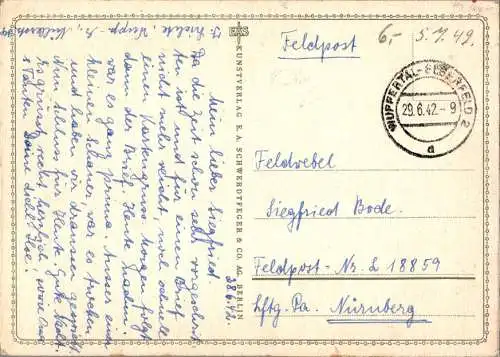 Feldpost
6,- 5.7.49.
WUPPERTAL-ELBERFELD 2
29.6.42.-9
d
Feldwebel
Siegfried Bode.
Feldpost-Nr. L 18859
Lftg. Pa. Nürnberg
EAS
KUNSTVERLAG E.A. SCHWERDTFEGER & CO. AG. BERLIN
28.6.42.
Mein lieber Siegfried!
Da die Zeit schon sehr vorgeschrit-
ten ist und für einen Brief
nicht mehr reicht, noch schnell
einen Kartengruss. Morgen folgt
dann der Brief. Heute
war es ganz prima. Ausser einem
kleinen Schauer war es trocken
und haben wir draussen
Nun Schluss für heute. Gute Nacht.
Es grüsst recht herzlich
Deine